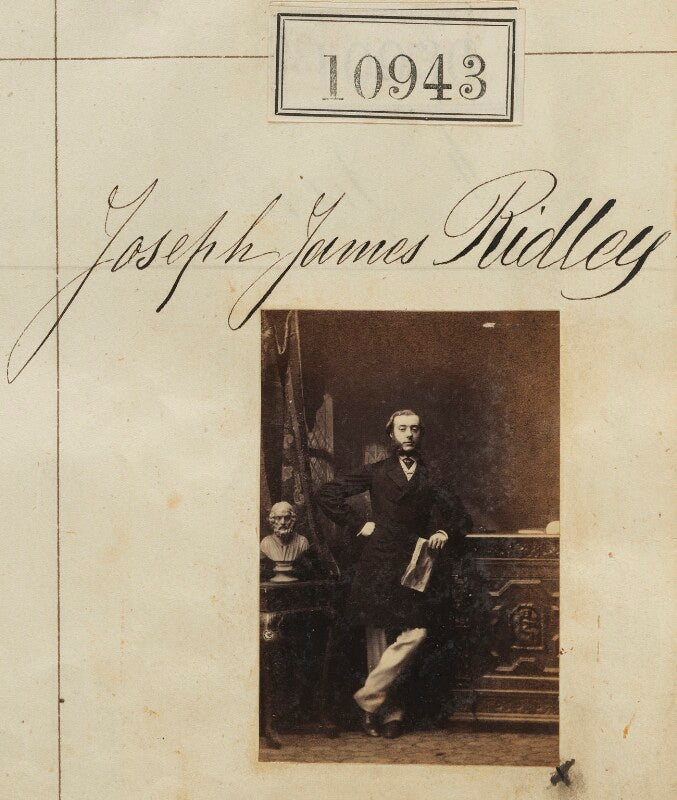 10943
Joseph James Ridley